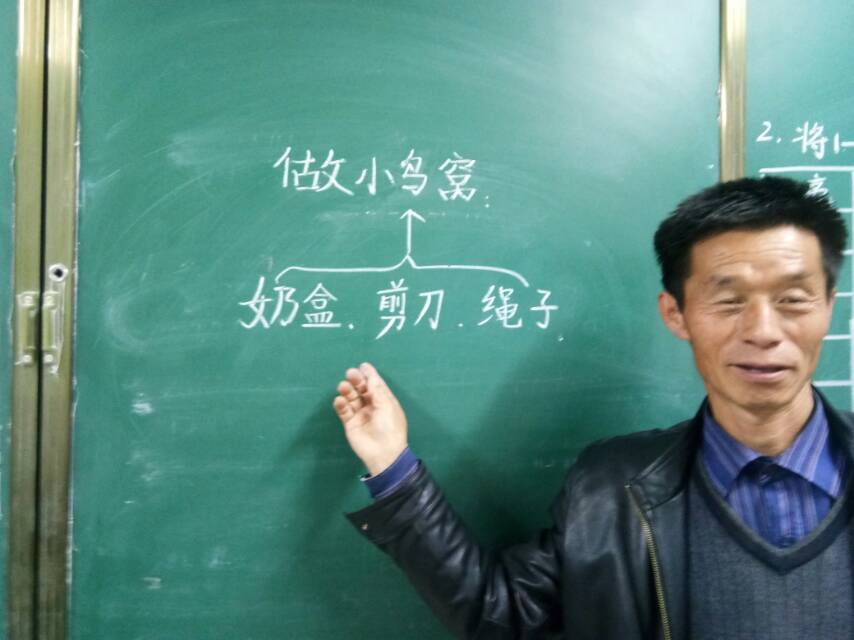 做小鸟窝：
奶盒、剪刀、绳子
2、将